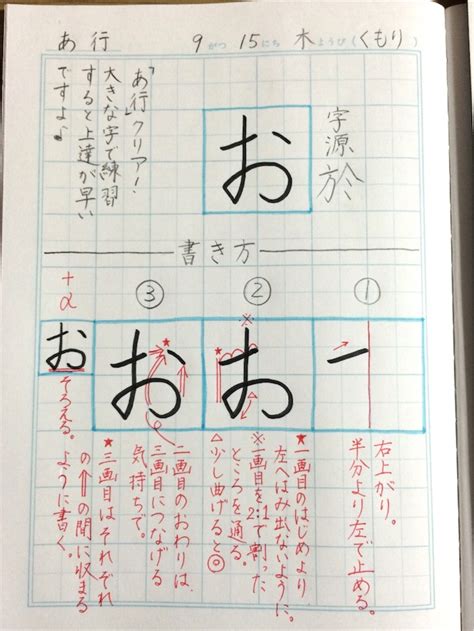 あ行 9がつ15にち 木ようび(くもり)
字源 於
お
「あ行」クリア!
大きな字で練習
すると上達が早い
ですよ♪
書き方
①
右上がり。
半分より左で止める。
②
お
※
★一画目のはじめより
左へはみ出ないように。
※一画目を2:1で割った
ところを通る。
△少し曲げると◎
③
お
二画目のおわりは、
三画目につなげる
気持ちで。
★三画目はそれぞれ
の⇑の間に収まる
ように書く。
+α
お
そろえる。